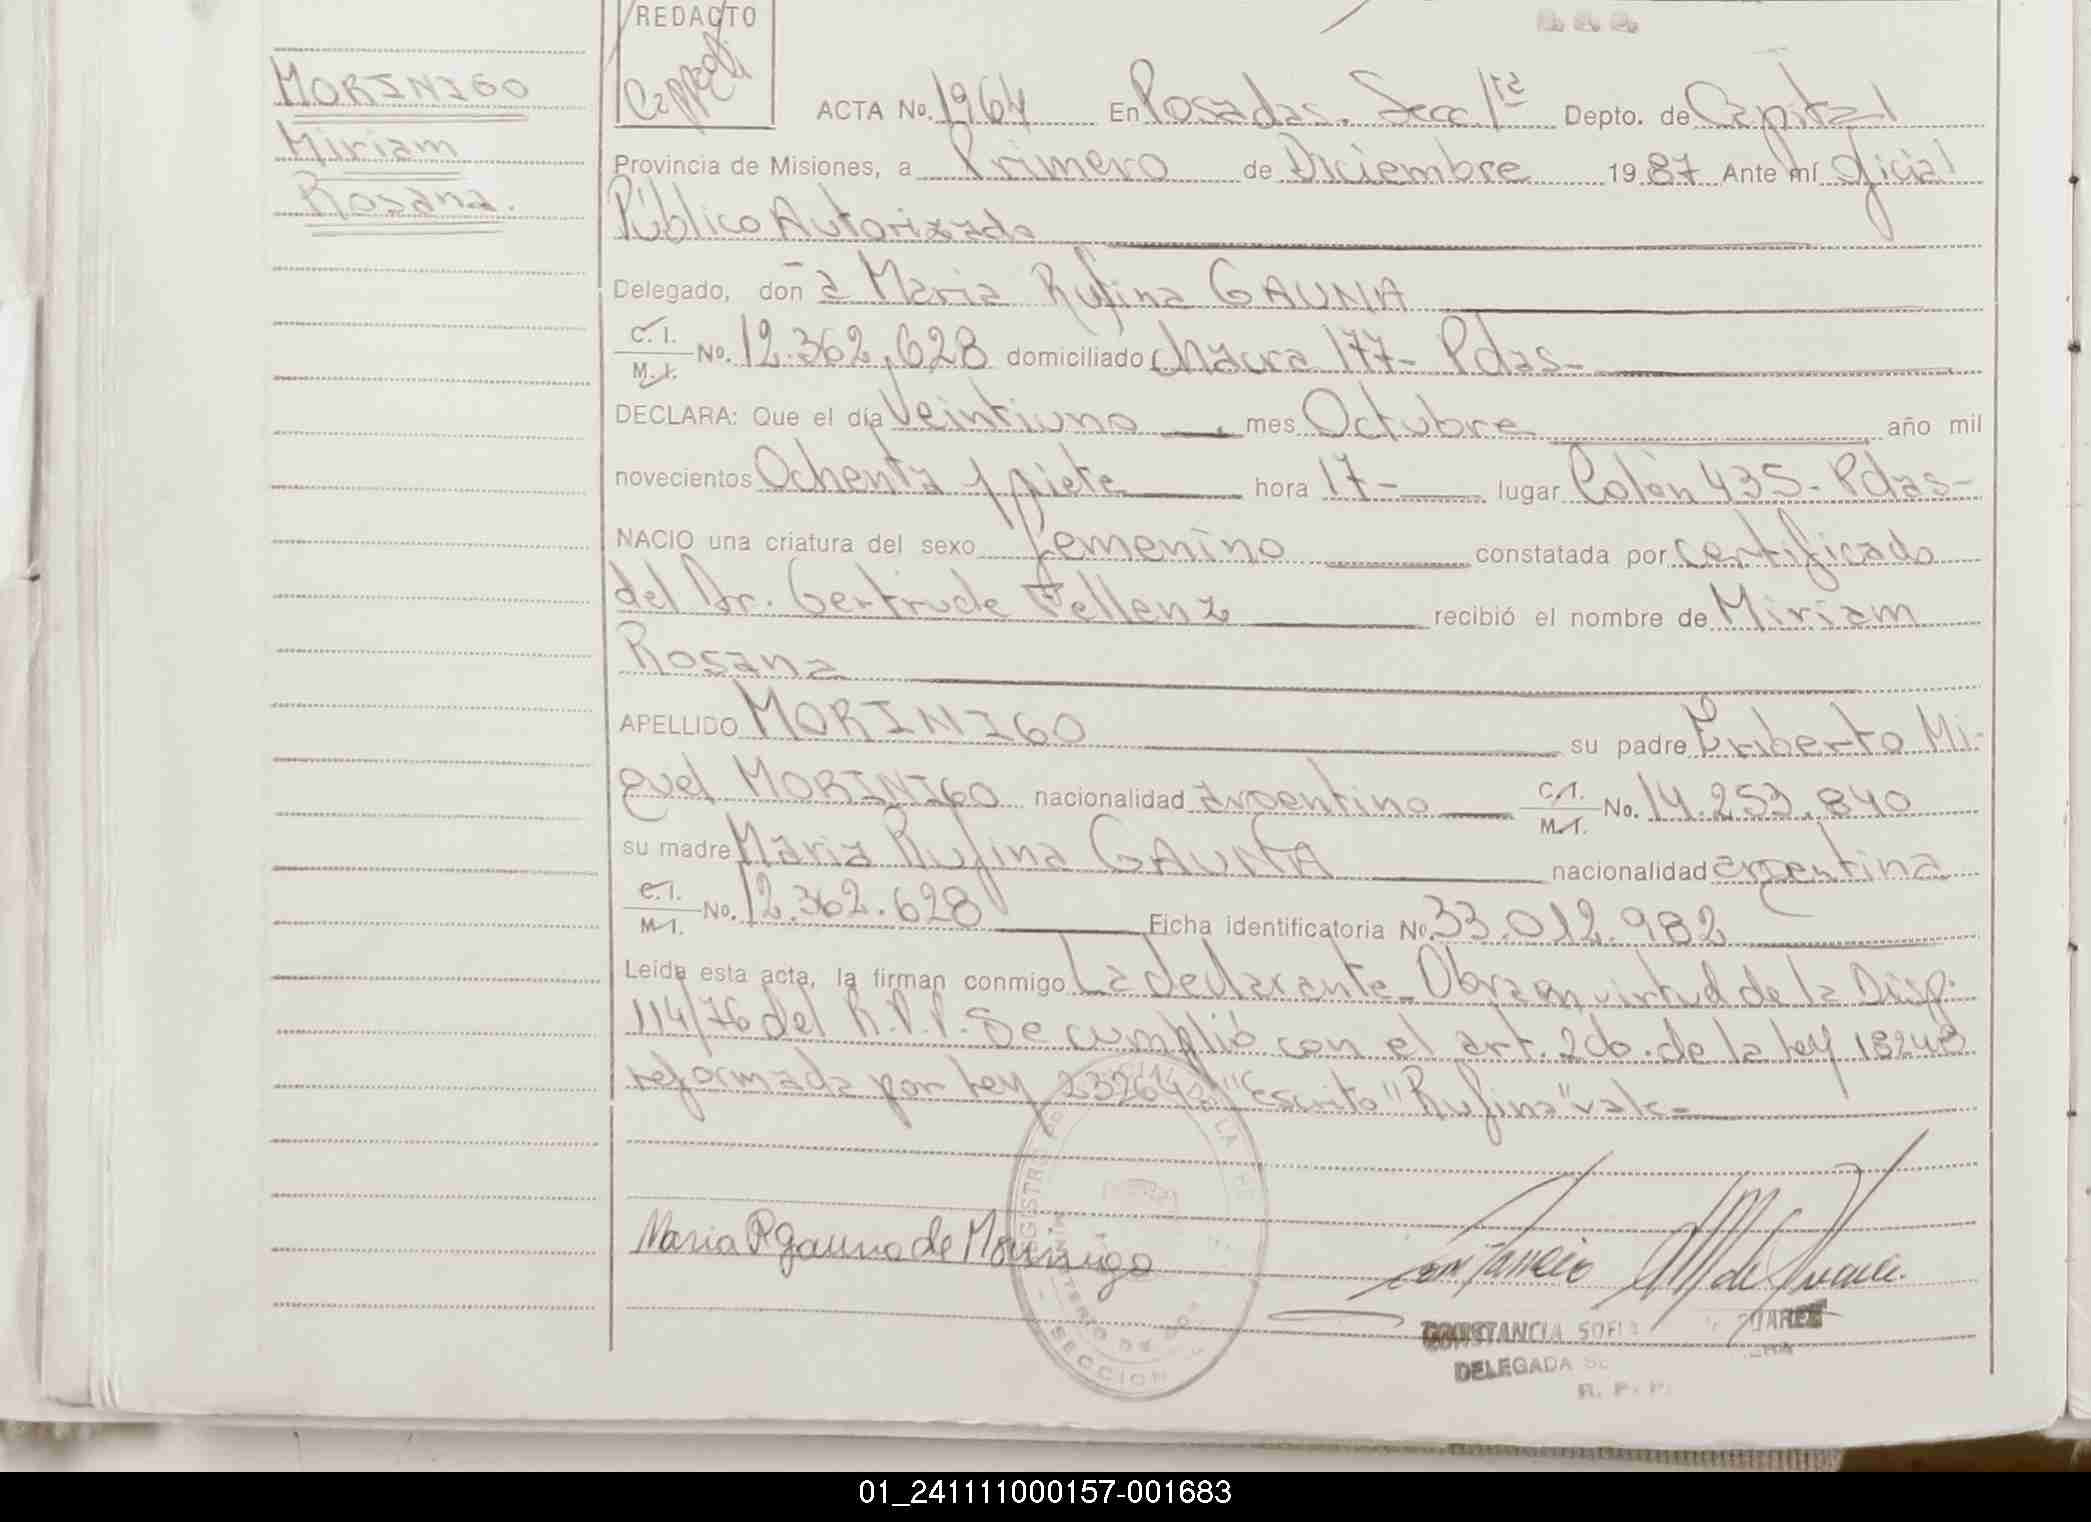 MORINIGO
Miriam
Rosana.
REDACTO
ACTA No. 1964 En Posadas. Secc. 1ra Depto. de Capital
Provincia de Misiones, a Primero de Diciembre 1987 Ante mí Oficial
Público Autorizado
Delegado, don ã Maria Rufina GAUNA
C. I. / M. I. No. 12.362.628 domiciliado chacra 177- Pdas-
DECLARA: Que el día Veintiuno mes Octubre año mil
novecientos Ochenta y siete hora 17- lugar Colón 435- Pdas-
NACIO una criatura del sexo femenino constatada por certificado
del Dr. Gertrude Fellenz recibió el nombre de Miriam
Rosana
APELLIDO MORINIGO su padre Eriberto Mi-
guel MORINIGO nacionalidad argentino C. I. / M. I. No. 14.253.840
su madre Maria Rufina GAUNA nacionalidad argentina
C. I. / M. I. No. 12.362.628 Ficha identificatoria No. 33.012.982
Leída esta acta, la firman conmigo La declarante- Obra en virtud de la Disp.
114/76 del R.P.P. Se cumplió con el art. 2do. de la ley 18248
reformada por ley 23264 "Escrito" "Rufina" vale-
Maria R gauna de Morinigo
CONSTANCIA SOFIA SUAREZ
DELEGADA
R. P. P.
SECCION
01_241111000157-001683